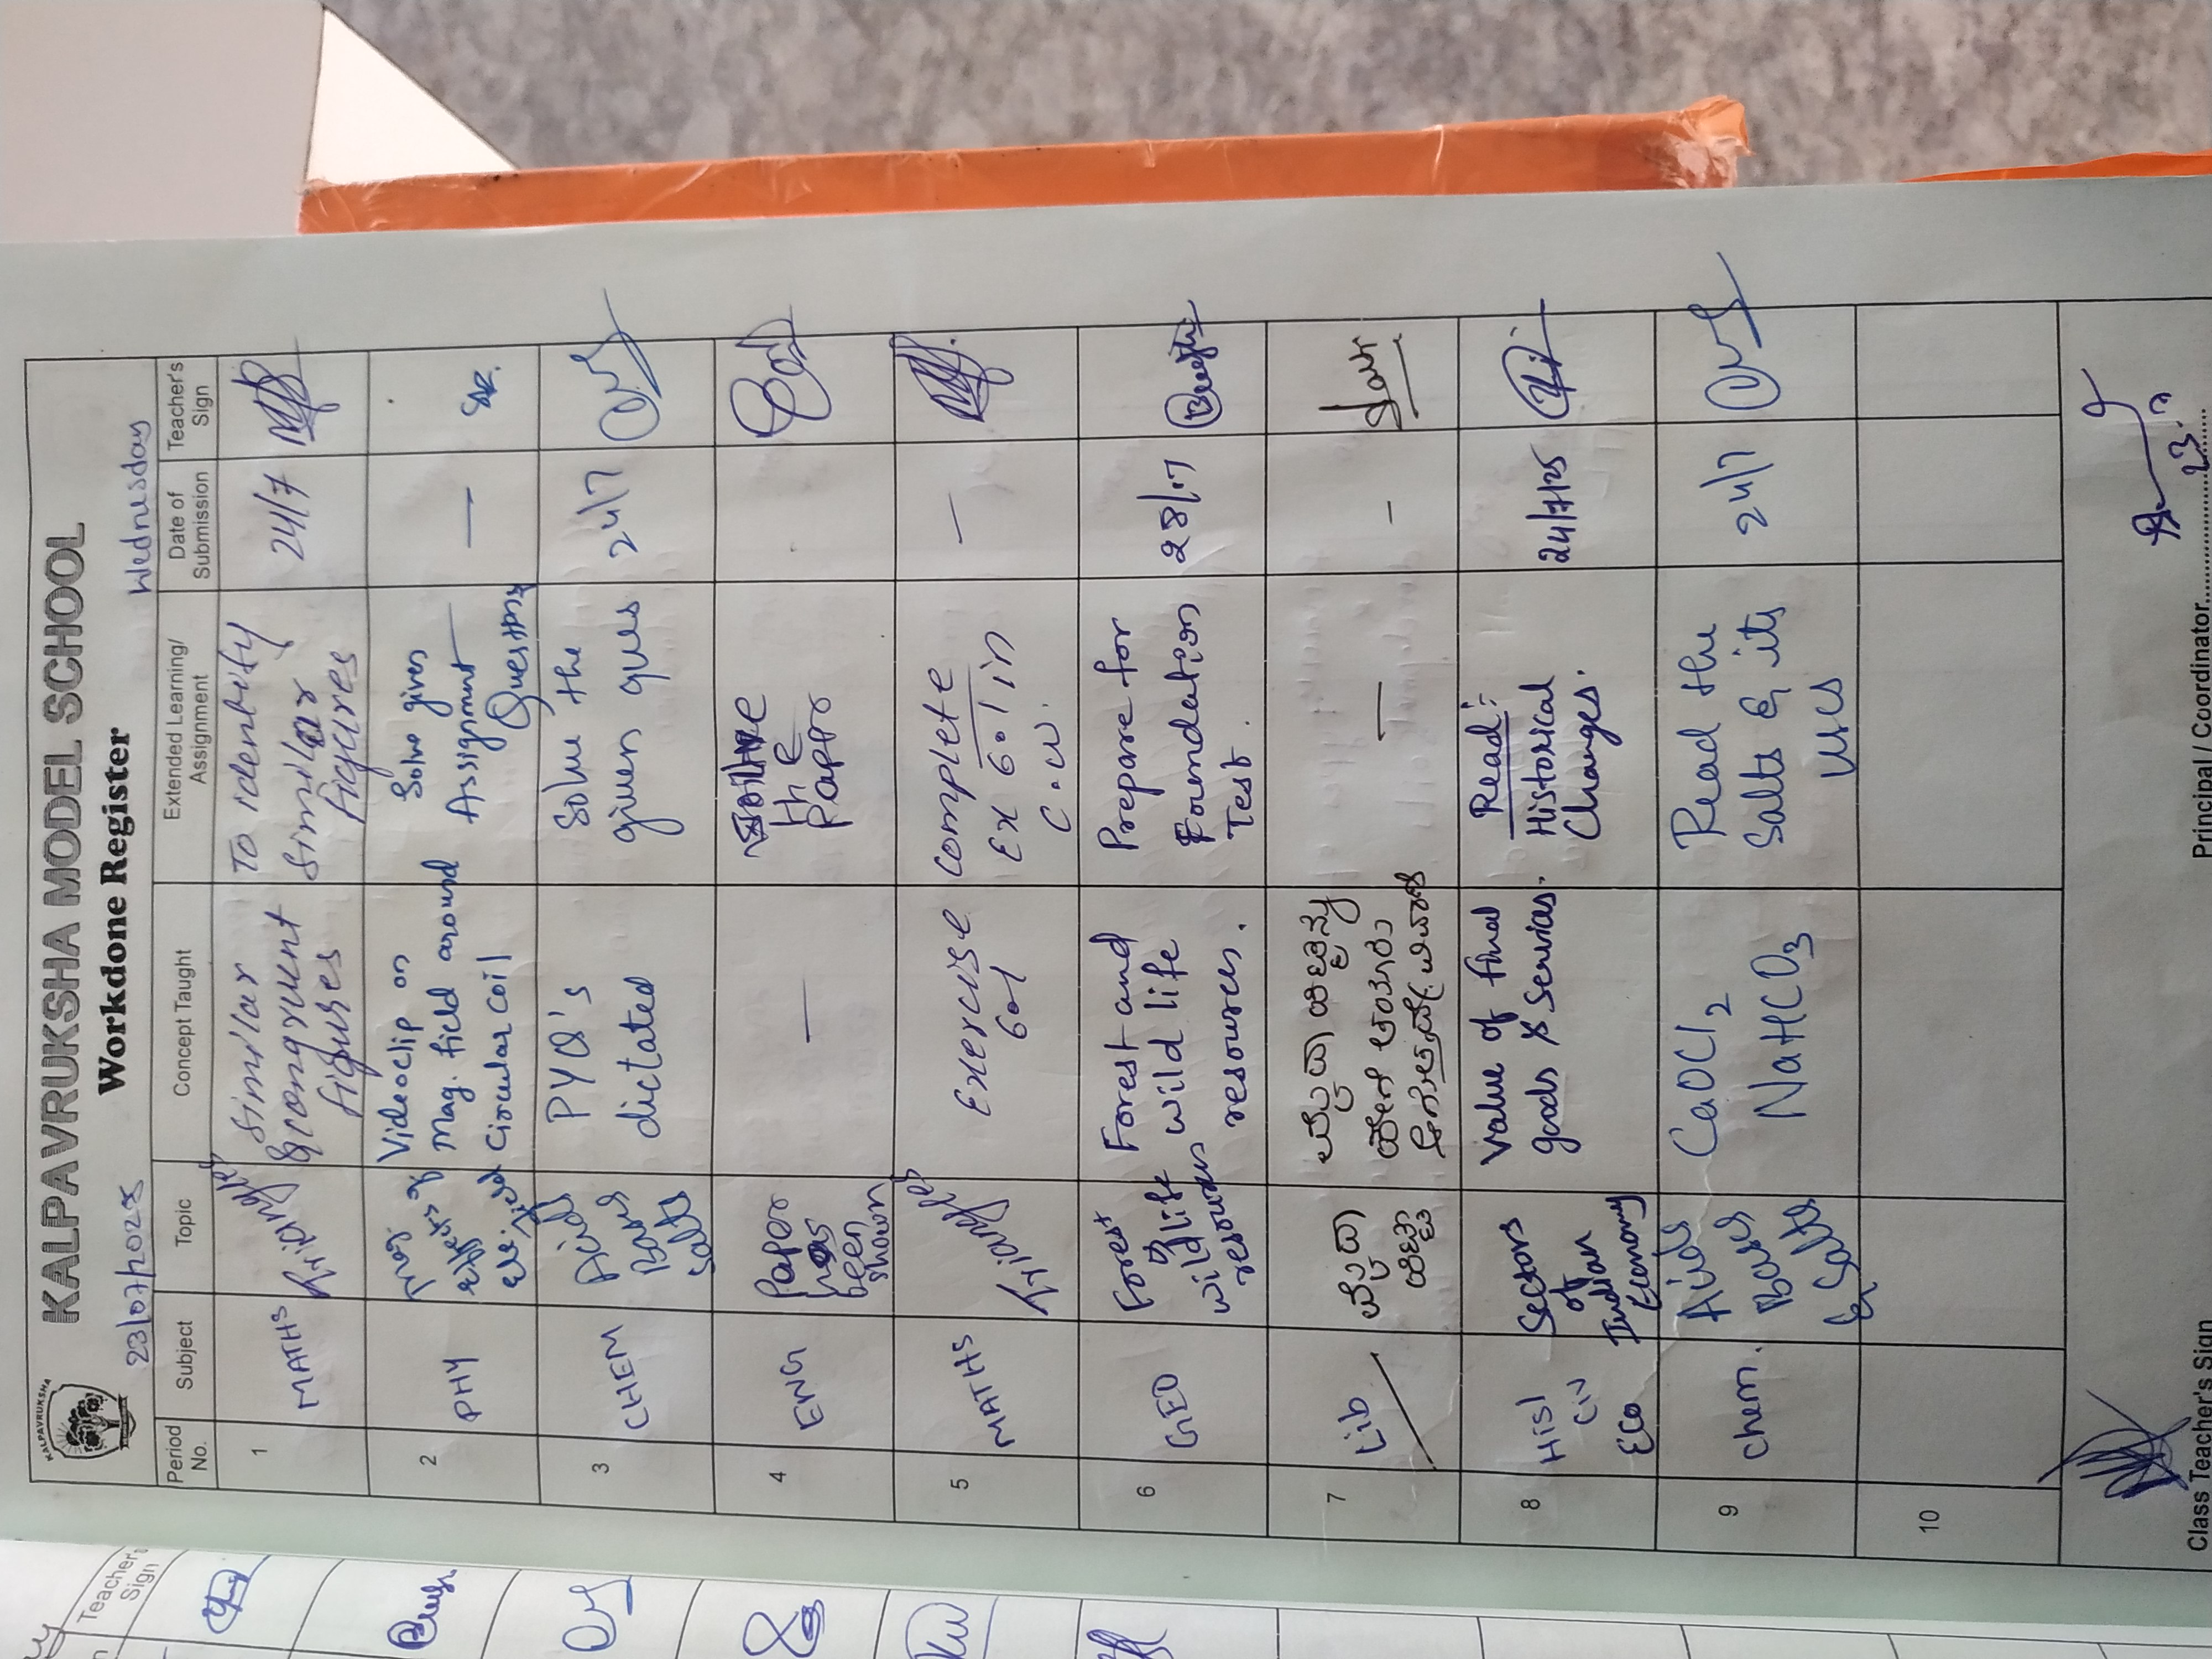 KALPAVRUKSHA
KALPAVRUKSHA MODEL SCHOOL
Workdone Register
23/07/2025 Wednesday
Period No. Subject Topic Concept Taught Extended Learning/ Assignment Date of Submission Teacher's Sign
1 MATHS Triangles Similar & congruent figures To identify similar figures 24/7
2 PHY Mag effects of Video clip on Mag. field around Circular coil Solve given Assignment Questions —
3 CHEM Acids Bases Salts PYQ's dictated Solve the given ques 24/7
4 ENG Paper has been shown — the Paper
5 MATHS Triangles Exercise 6.1 complete Ex 6.1 in C.W. —
6 GEO Forest & wild life resources Forest and wild life resources. Prepare for Foundation Test. 28/7
7 Lib — -
8 Hist Civ Eco Sectors of Indian Economy Value of final goods & Services. Read: Historical Changes. 24/7/25
9 Chem. Acids Bases & Salts CaOCl2 NaHCO3 Read the Salts & its uses 24/7
10
Class Teacher's Sign Principal / Coordinator
23.7
Teacher's Sign